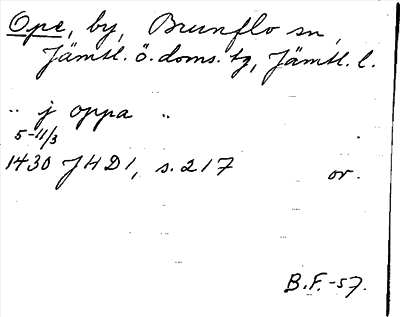 Ope, by, Brunflo sn,
Jämtl. ö. doms. tg, Jämtl. l.
" j oppa "
5-11/3
1430 JHD 1, s. 217 or.
B.F.-57.